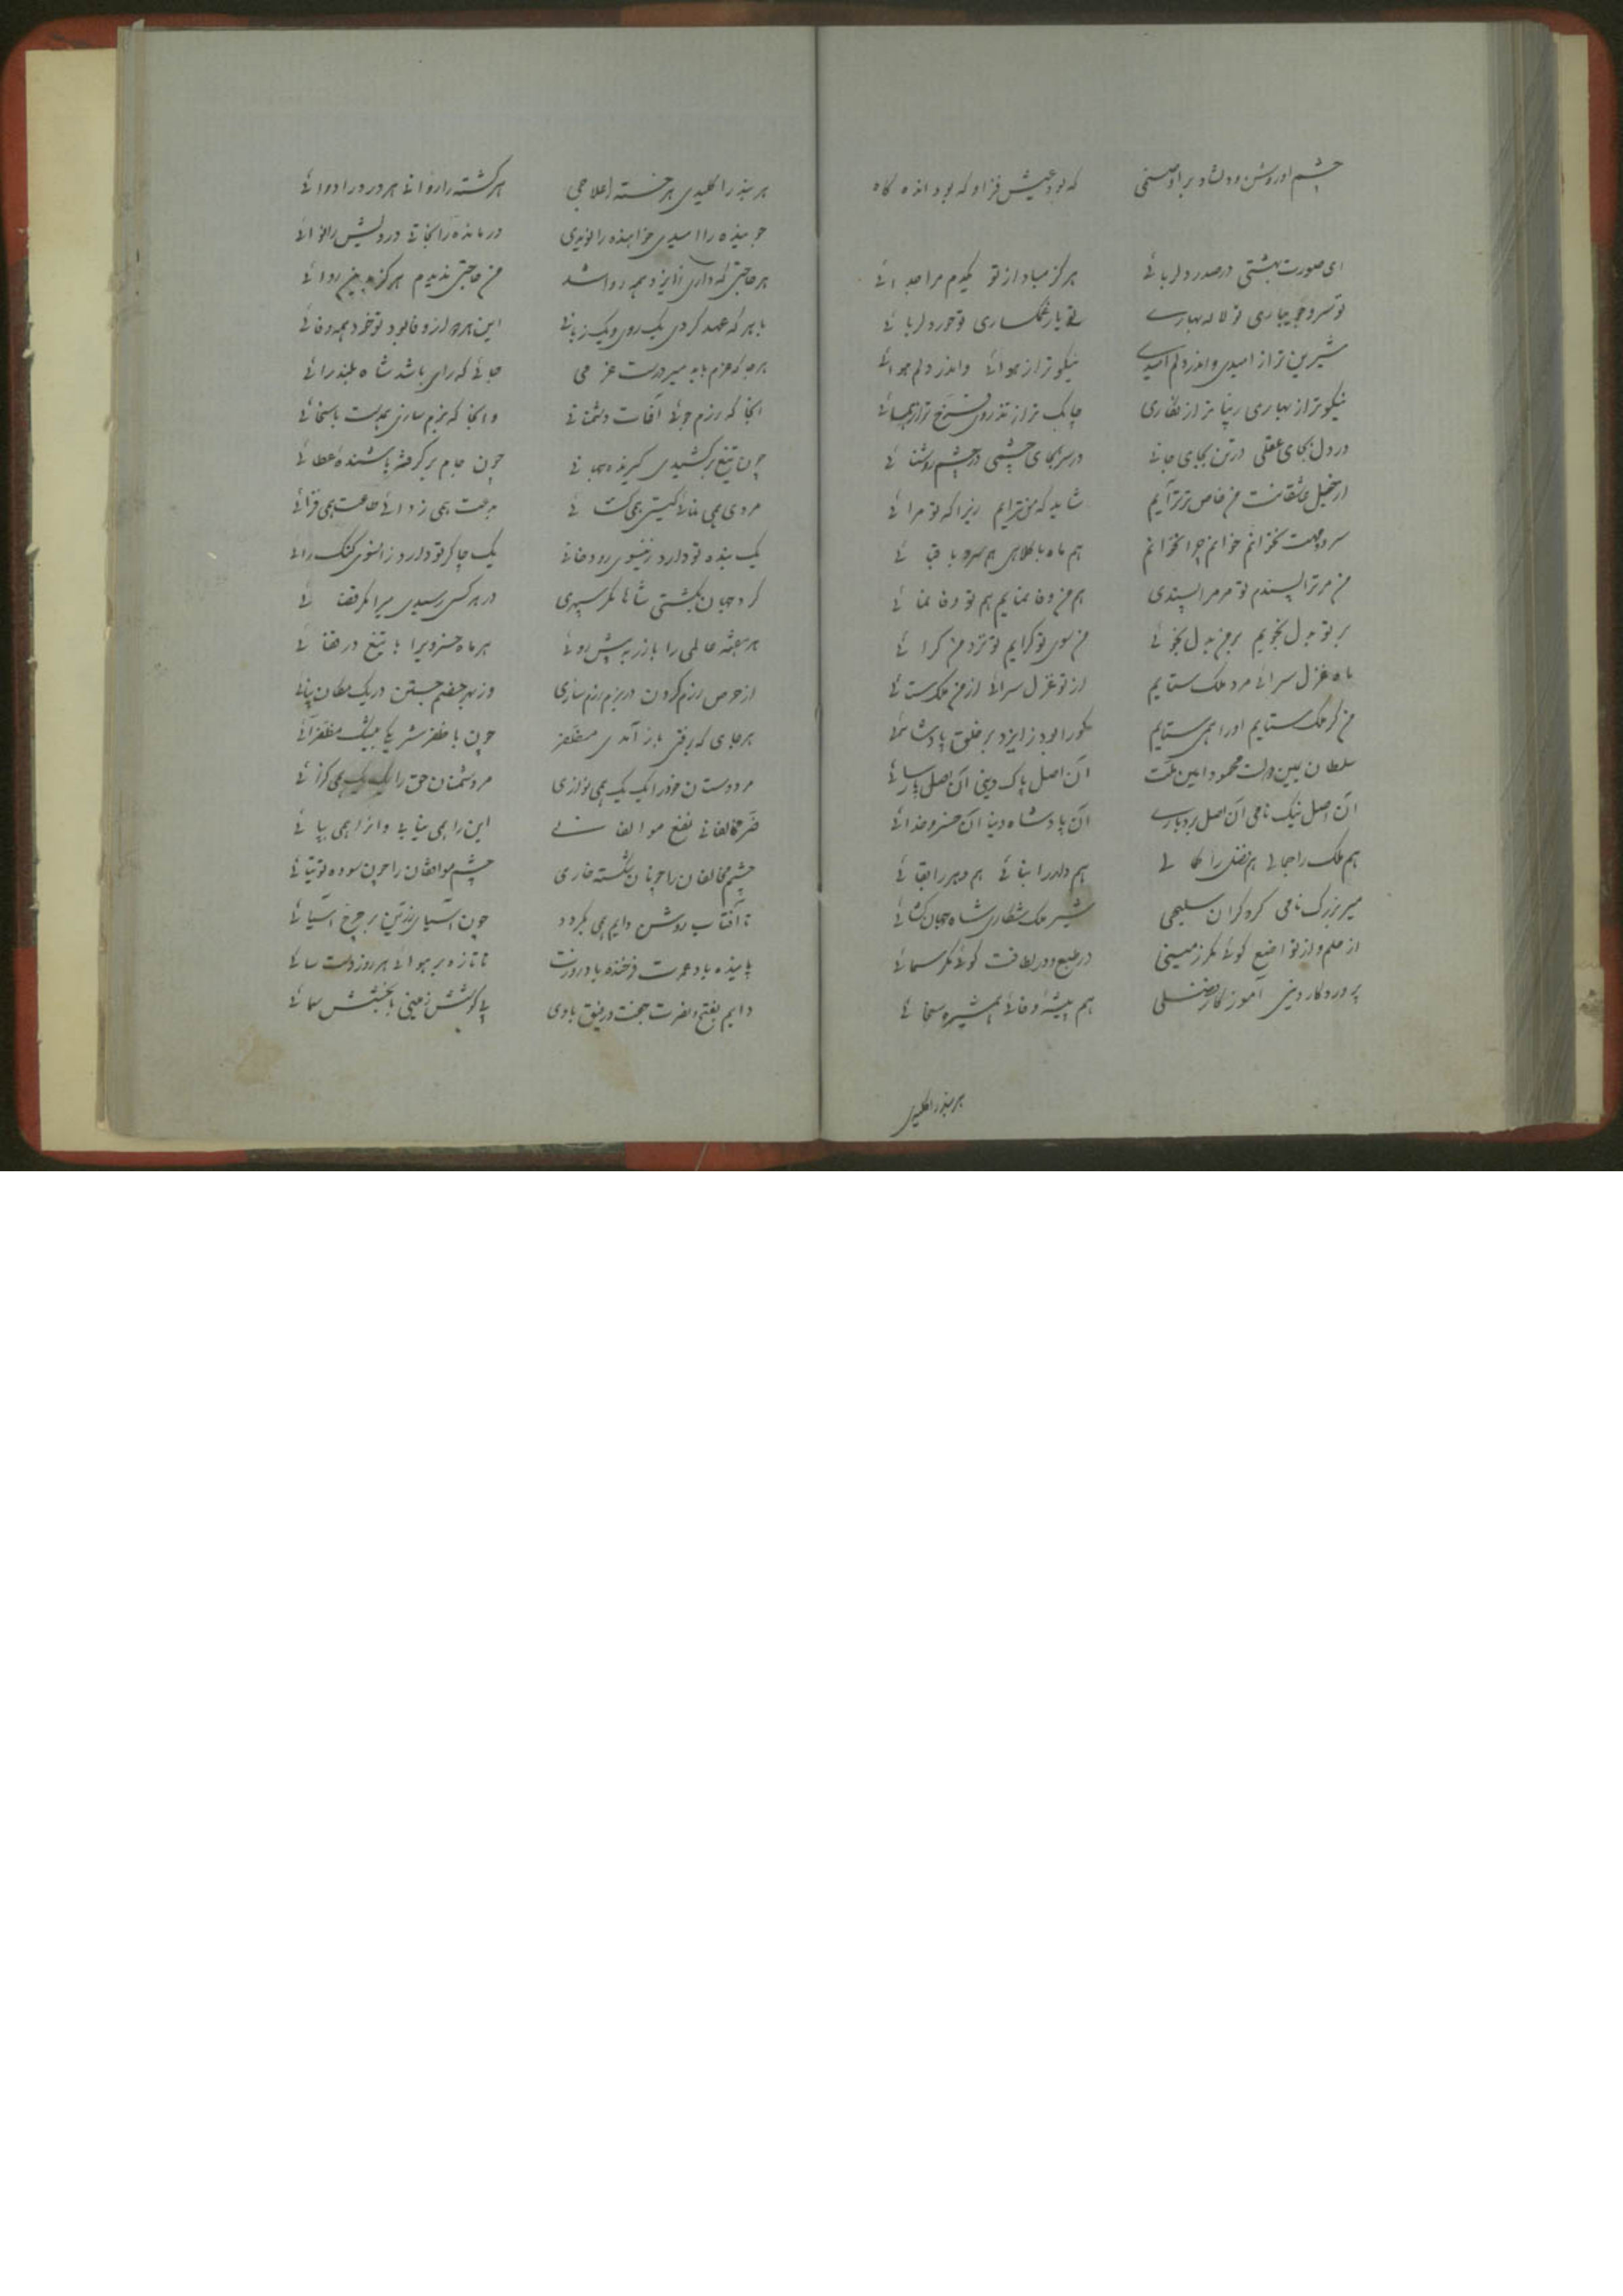 چشم او روشن و دلشاد بر او صنمی که بود عیش فزا و که بود انده کاه
ای صورت بهشتی در صدر دلربائی هرگز مباد از تو یکدم مرا جدائی
تو سرو جویباری تو لاله بهاری تو یار غمگساری تو حور دلربائی
شیرین تر از امیدی و اندر دلم امیدی نیکوتر از هوائی و اندر دلم هوائی
نیکوتر از بهاری زیباتر از نگاری چابک تر از تذروی فرخ تر از همائی
در دل بجای عقلی در تن بجای جانی در سر بجای چشمی در چشم روشنائی
از خیل عاشقانت من خاص تر ترآیم شاید که من ترایم زیرا که تو مرائی
سرو مهت نخوانم خوانم چرا نخوانم هم ماه با کلاهی هم سرو با قبائی
من مر ترا پسندم تو مر مرا پسندی هم من وفا نمایم هم تو وفا نمائی
بر تو بدل نجویم بر من بدل نجوئی من سوی تو گرایم تو نزد من گرائی
ماه غزل سرائی مرد ملک ستایم از تو غزل سرائی از من ملک ستائی
من گر ملک ستایم او را همی ستایم کورا بود ز ایزد بر خلق پادشائی
سلطان یمین دولت محمود امین ملت آن اصل پاک دینی آن اصل پارسائی
آن اصل نیک نامی آن اصل بردباری آن پادشاه دنیا آن خسرو خدائی
هم ملک را جمالی هم فضل را کمالی هم داد را بنائی هم دهر را بقائی
میر بزرگ نامی گرد گران سلیحی شیر ملک شکاری شاه جهان گشائی
از حلم و از تواضع گوئی مگر زمینی در طبع و در لطافت گوئی مگر سمائی
پروردگار دینی آموزگار فضلی هم پیشه وفائی هم شیره سخائی
هر بند را کلیدی
هر بند را کلیدی هر خسته را علاجی هر کشته را روانی هر درد را دوائی
جوینده را امیدی خواهنده را نویدی درمانده را نجاتی درویش را نوائی
هر حاجتی که داری از ایزد همه روا شد من حاجتی ندیدم هرگز بدین روائی
با هر که عهد کردی یک روی و یک زبانی این هر دو از وفا بود تو خود همه وفائی
هر جا که عزم باید میر درست عزمی جائی که رای باشد شاه بلند رائی
آنجا که رزم جوئی آفات دشمنانی و آنجا که بزم سازی بدست با سخائی
چون تیغ برکشیدی گیرنده جهانی چون جام برگرفتی باشنده عطائی
مردی همی نمائی گیتی همی گشائی بدعت همی زدائی طاعت همی فزائی
یک بنده تو دارد زینسوی رود خانی یک چاکر تو دارد زانسوی گنگ رائی
گرد جهان بگشتی شاها مگر سپهری در هر کسی رسیدی میرا مگر قضائی
هر هفته عالمی را باز ربه پیش روئی هر ماه خسرویرا با تیغ در قفائی
از حرص رزم کردن در بزم رزم سازی وز بهر خصم جستن در یک مکان نپائی
هر جای که رفتی باز آمدی مظفر چون با ظفر شریکی بیشک مظفر آئی
مر دوستان خود را یک یک همی نوازی مر دشمنان حق را یک یک همی گزائی
ضر مخالفانی نفع موالفانی این را همی بیابی و انرا همی بپائی
چشم مخالفان را چونان شکسته خاری چشم موافقان را چون سوده توتیائی
تا آفتاب روشن دایم همی بگردد چون آسیای زرین بر چرخ آسیائی
پاینده باد عمرت فرخنده باد روزت تا تازه بر هوائی هر روز دلت سائی
دایم بفتح و نصرت جفت و رفیق بادی با کوشش زمینی با بخشش سمائی